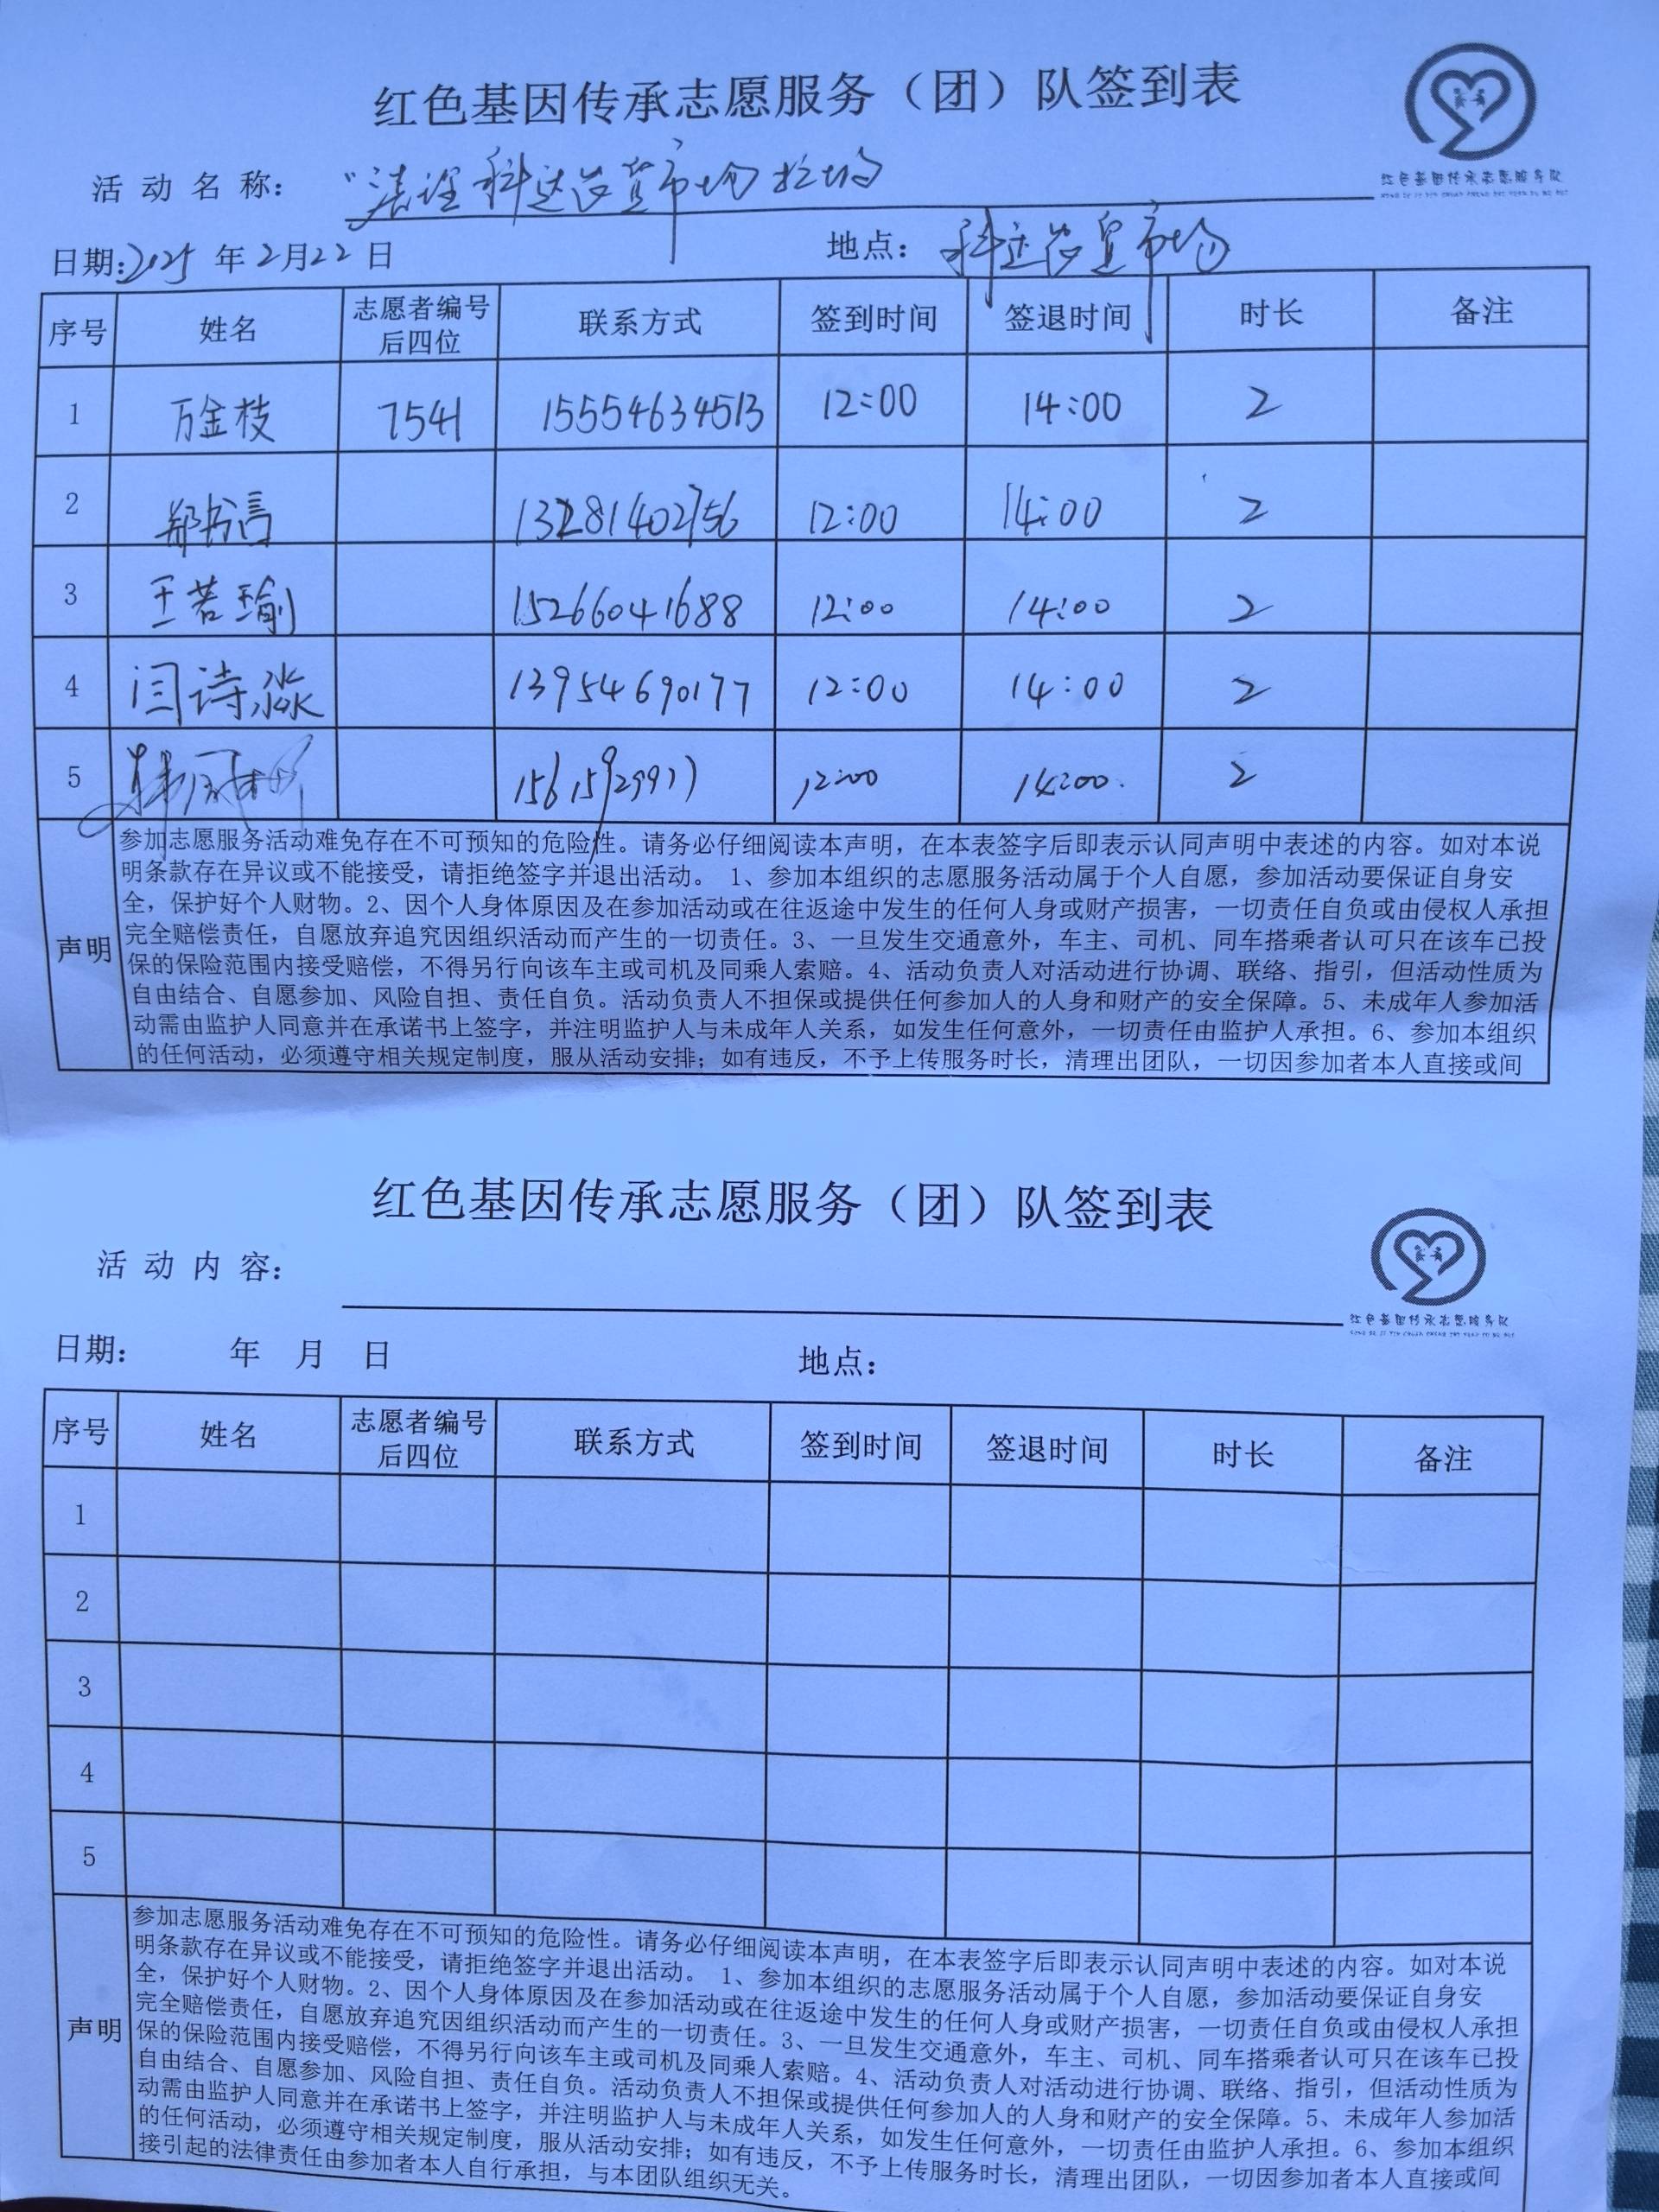 红色基因传承志愿服务（团）队签到表
红色基因传承志愿服务队
活动名称：“清理科达尚货市场垃圾
日期：2025年2月22日 地点：科达尚货市场
序号 姓名 志愿者编号后四位 联系方式 签到时间 签退时间 时长 备注
1 万金枝 7541 15554634513 12:00 14:00 2
2 郑书言 13281402756 12:00 14:00 2
3 王若瑜 15266041688 12:00 14:00 2
4 闫诗淼 13954690177 12:00 14:00 2
5 15615929977 12:00 14:00 2
声明
参加志愿服务活动难免存在不可预知的危险性。请务必仔细阅读本声明，在本表签字后即表示认同声明中表述的内容。如对本说
明条款存在异议或不能接受，请拒绝签字并退出活动。 1、参加本组织的志愿服务活动属于个人自愿，参加活动要保证自身安
全，保护好个人财物。2、因个人身体原因及在参加活动或在往返途中发生的任何人身或财产损害，一切责任自负或由侵权人承担
完全赔偿责任，自愿放弃追究因组织活动而产生的一切责任。3、一旦发生交通意外，车主、司机、同车搭乘者认可只在该车已投
保的保险范围内接受赔偿，不得另行向该车主或司机及同乘人索赔。4、活动负责人对活动进行协调、联络、指引，但活动性质为
自由结合、自愿参加、风险自担、责任自负。活动负责人不担保或提供任何参加人的人身和财产的安全保障。5、未成年人参加活
动需由监护人同意并在承诺书上签字，并注明监护人与未成年人关系，如发生任何意外，一切责任由监护人承担。6、参加本组织
的任何活动，必须遵守相关规定制度，服从活动安排；如有违反，不予上传服务时长，清理出团队，一切因参加者本人直接或间
红色基因传承志愿服务（团）队签到表
红色基因传承志愿服务队
活动内容：
日期： 年 月 日 地点：
序号 姓名 志愿者编号后四位 联系方式 签到时间 签退时间 时长 备注
1
2
3
4
5
声明
参加志愿服务活动难免存在不可预知的危险性。请务必仔细阅读本声明，在本表签字后即表示认同声明中表述的内容。如对本说
明条款存在异议或不能接受，请拒绝签字并退出活动。 1、参加本组织的志愿服务活动属于个人自愿，参加活动要保证自身安
全，保护好个人财物。2、因个人身体原因及在参加活动或在往返途中发生的任何人身或财产损害，一切责任自负或由侵权人承担
完全赔偿责任，自愿放弃追究因组织活动而产生的一切责任。3、一旦发生交通意外，车主、司机、同车搭乘者认可只在该车已投
保的保险范围内接受赔偿，不得另行向该车主或司机及同乘人索赔。4、活动负责人对活动进行协调、联络、指引，但活动性质为
自由结合、自愿参加、风险自担、责任自负。活动负责人不担保或提供任何参加人的人身和财产的安全保障。5、未成年人参加活
动需由监护人同意并在承诺书上签字，并注明监护人与未成年人关系，如发生任何意外，一切责任由监护人承担。6、参加本组织
的任何活动，必须遵守相关规定制度，服从活动安排；如有违反，不予上传服务时长，清理出团队，一切因参加者本人直接或间
接引起的法律责任由参加者本人自行承担，与本团队组织无关。